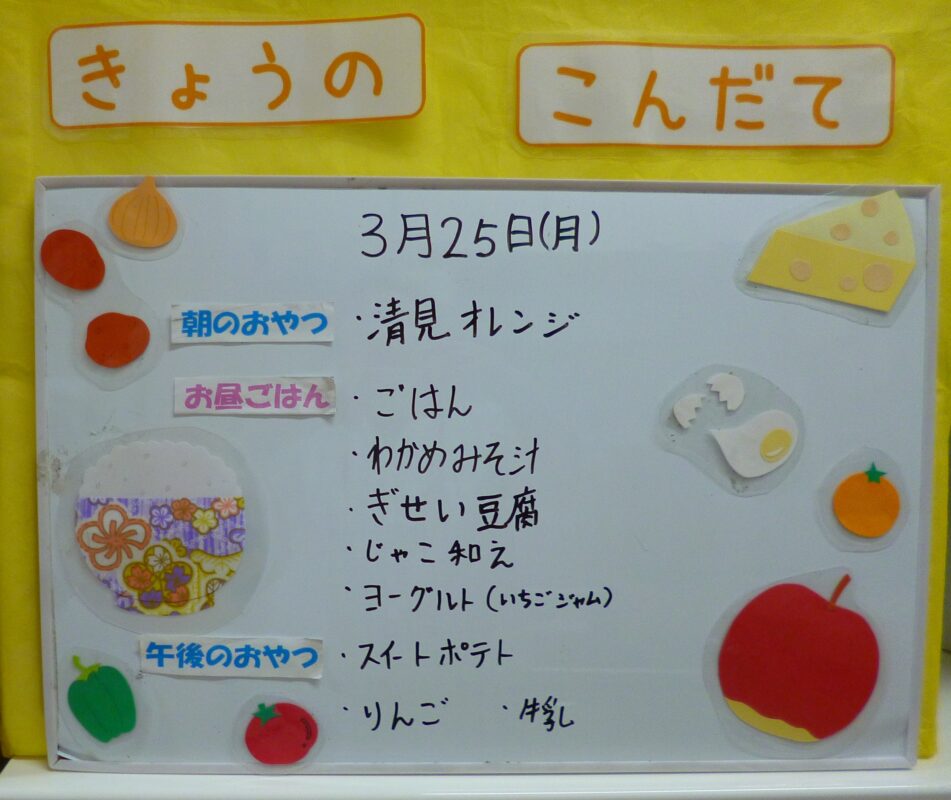 きょうの こんだて
3月25日(月)
朝のおやつ ・清見オレンジ
お昼ごはん ・ごはん
・わかめみそ汁
・ぎせい豆腐
・じゃこ和え
・ヨーグルト(いちごジャム)
午後のおやつ ・スイートポテト
・りんご ・牛乳